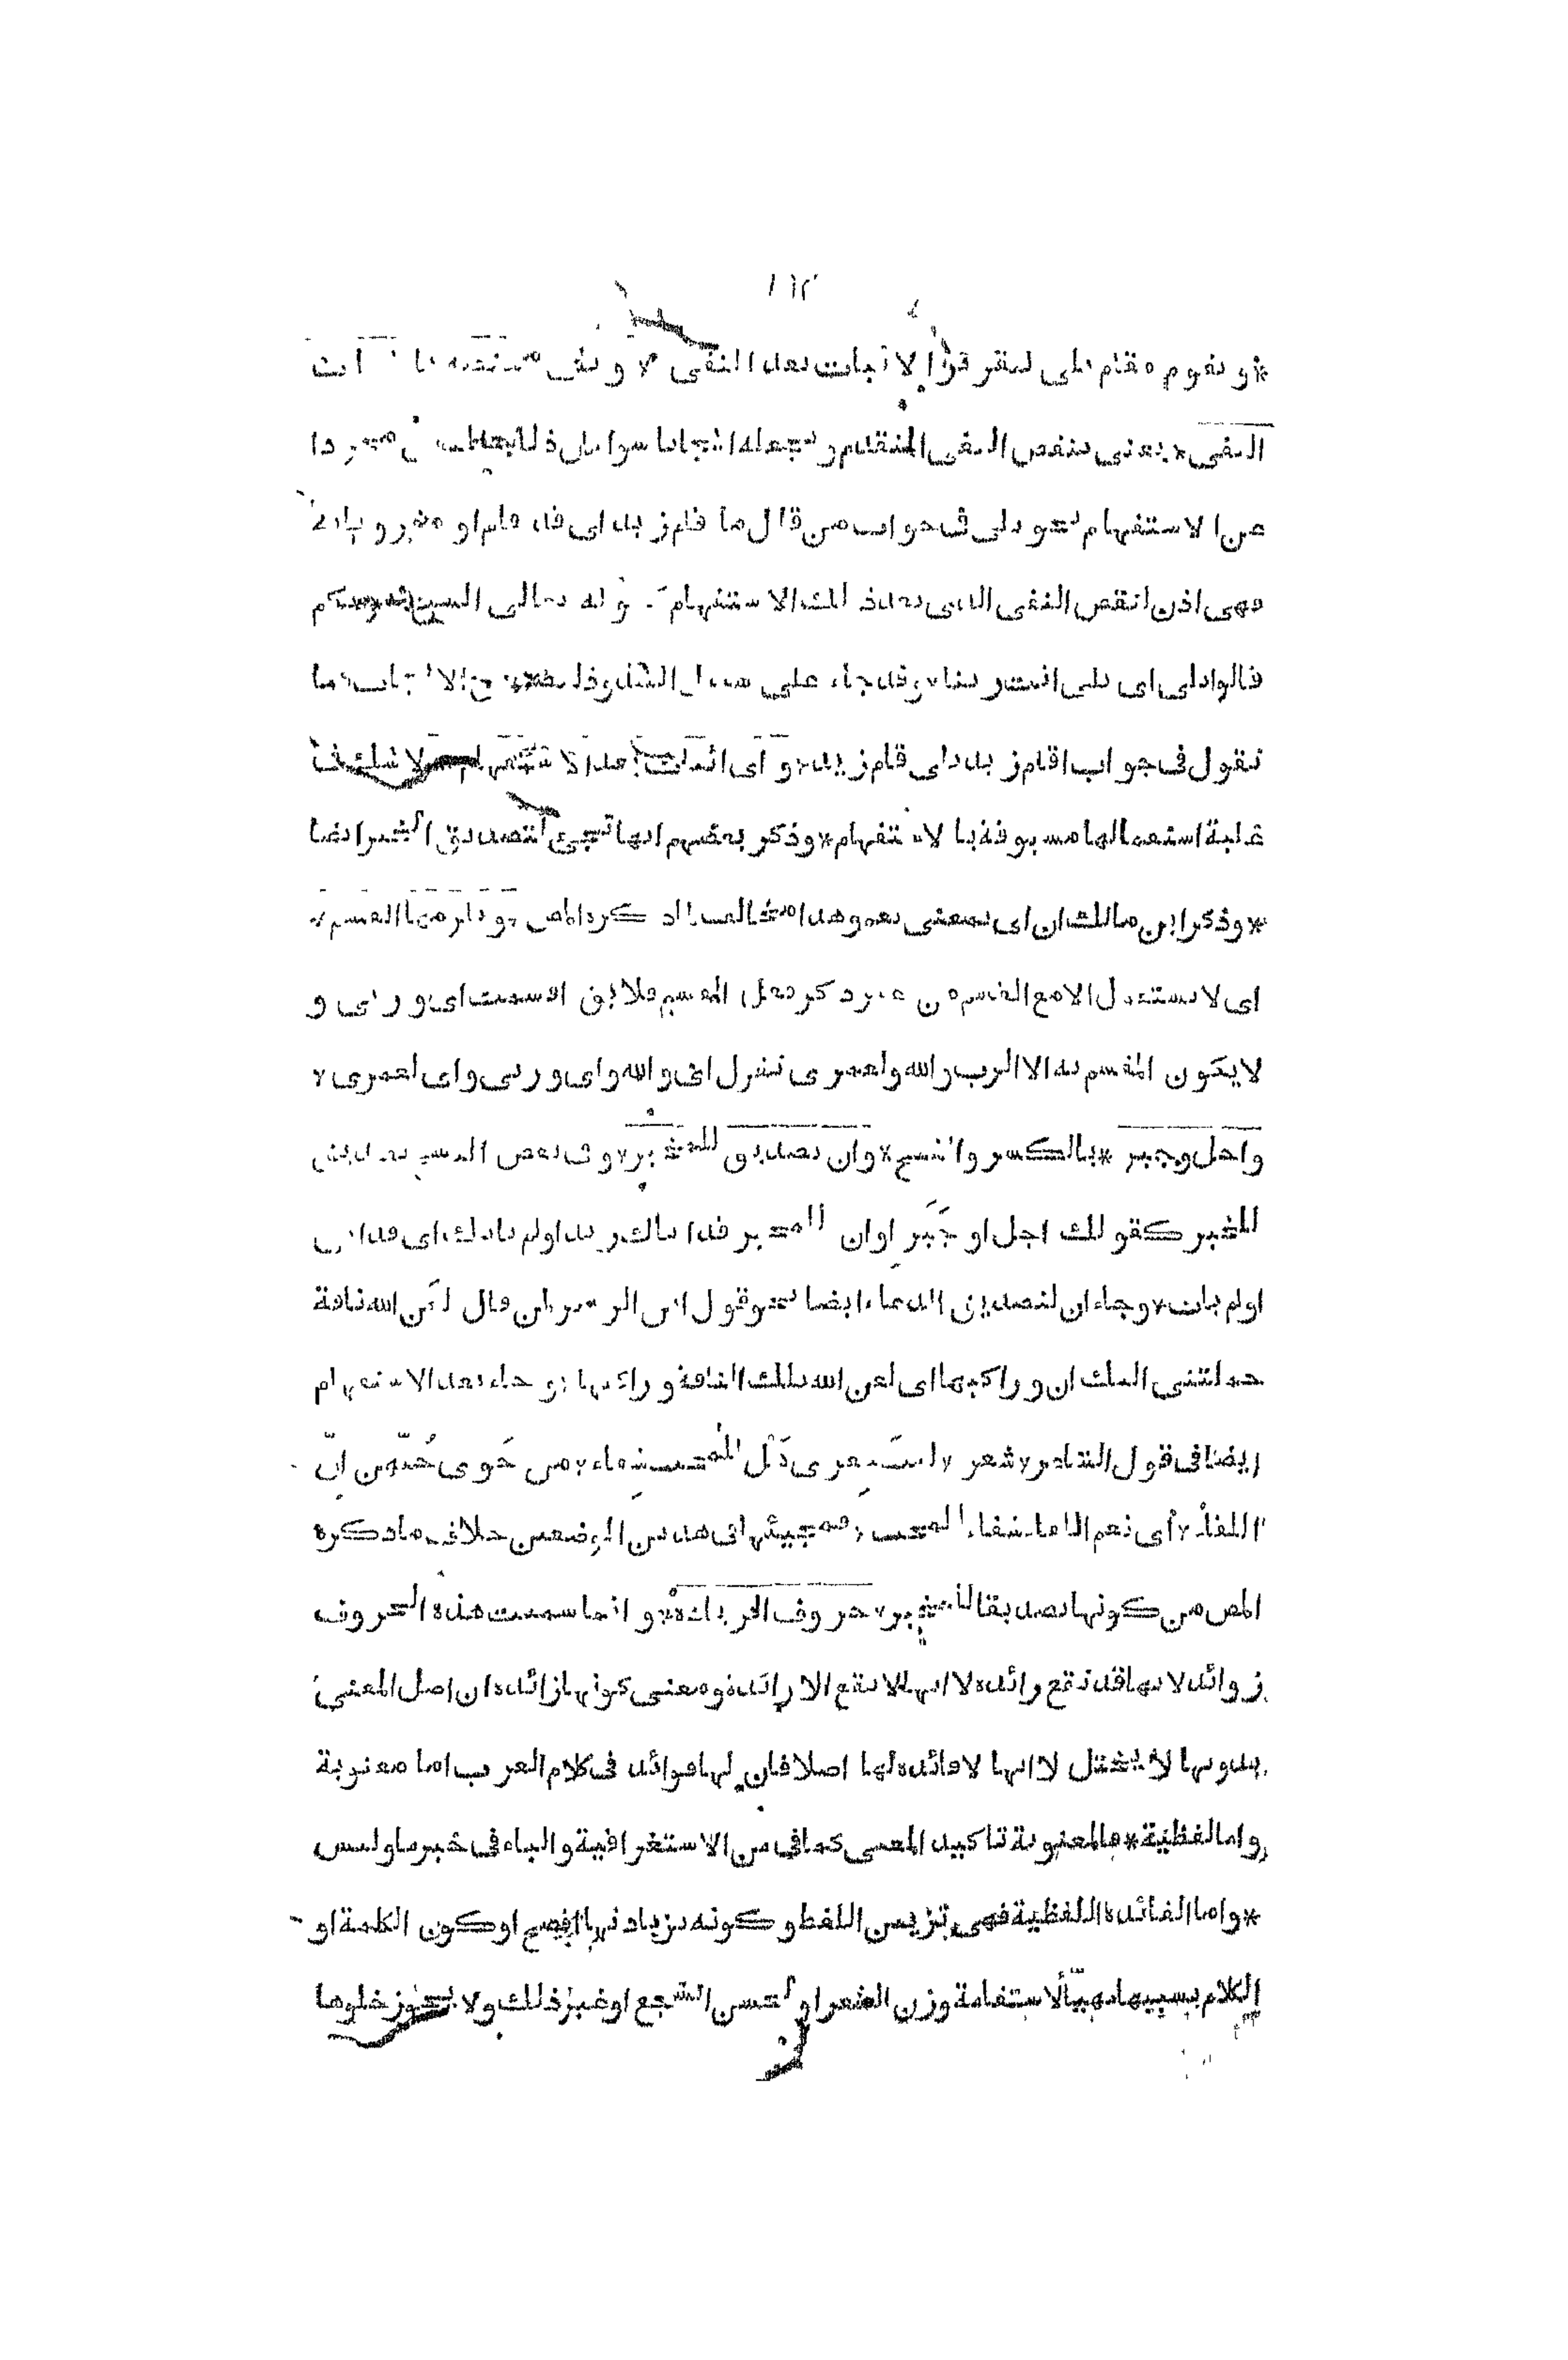 * و تقوم مقام بلى لتقرير الاثبات بعد النفى *
النفى * يعنى ينقض النفى المتقدم و تجعله ايجابا سواء كان ذلك مجردا
عن الاستفهام نحو بلى فى جواب من قال ما قام زيد اى قد قام او مقرونا
فهى اذن لنقض النفى الذى بعد ذلك الاستفهام قوله تعالى الست بربكم
قالوا بلى اى بلى انت ربنا * وقد جاء على سبيل الشذوذ لتصديق الايجاب كما
تقول فى جواب اقام زيد بلى قام زيد * و اى اثبات بعد الاستفهام * ولا شك فى
غلبة استعمالها مسبوقة بالاستفهام * وذكر بعضهم انها تجئ لتصديق الخبر ايضا
* وذكر ابن مالك ان اى بمعنى نعم وهذا مخالف لما ذكره المص * و يلزمها القسم *
اى لا يستعمل الا مع القسم من غير ذكر فعل القسم فلا يق اقسمت اى و ربى و
لا يكون المقسم به الا الرب والله ولعمرى تقول اى والله واى و ربى واى لعمرى *
واجل وجير * بالكسر والفتح * وان تصديق للمخبر * وفى بعض النسخ تصديق
للخبر كقولك اجل او جَيرِ او ان للمخبر قد اتاك زيد او لم ياتك اى قد اتى
او لم يات * وجاء ان لتصديق الدعاء ايضا نحو قول ابن الزبير لمن قال لعن الله ناقة
حملتنى اليك ان و راكبها اى لعن الله تلك الناقة و راكبها * و جاء بعد الاستفهام
ايضا فى قول الشاعر * شعر * ليت شعرى هل للمحب شفاء * من جَوى حُبّهن انّ
اللقاء * اى نعم اللقاء شفاء للمحب * فمجيئها فى هذين الموضعين خلاف ما ذكره
المص من كونها تصديقا للمخبر * حروف الزيادة * و انما سميت هذه الحروف
زوائد لانها قد تقع زائدة لا انها لا تقع الا زائدة و معنى كونها زائدة ان اصل المعنى
بدونها لا يختل لا انها لا فائدة لها اصلا فان لها فوائد فى كلام العرب اما معنوية
واما لفظية * فالمعنوية تاكيد المعنى كما فى من الاستغراقية والباء فى خبر ما وليس
* واما الفائدة اللفظية فهى تزيين اللفظ و كونه بزيادتها افصح او كون الكلمة او
الكلام بسببها مهيّأ لاستقامة وزن الشعر او لحسن السجع او غير ذلك ولا يجوز خلوها